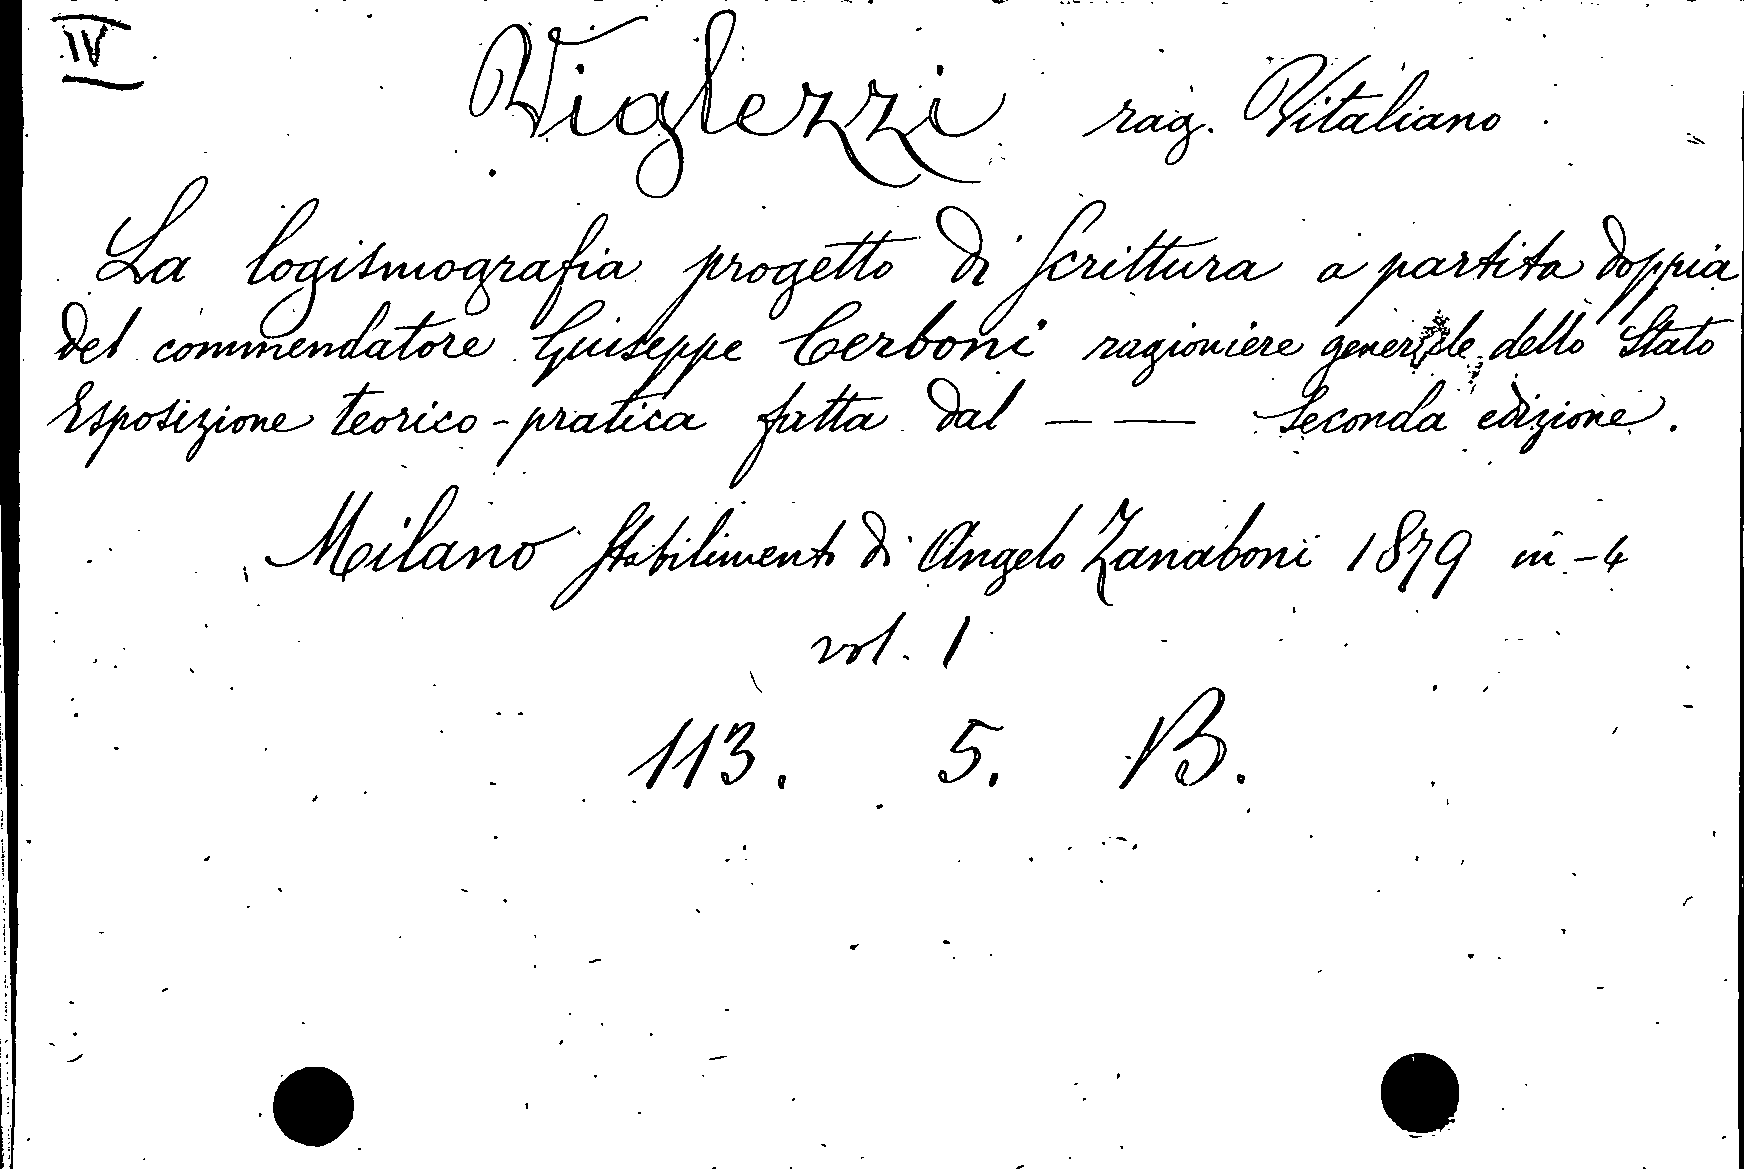 IV
Viglezzi rag. Vitaliano
La logismografia progetto di scrittura a partita doppia
del commendatore Giuseppe Cerboni ragioniere generale dello Stato
Esposizione teorico-pratica fatta dal — — seconda edizione.
Milano Stabilimento di Angelo Zanaboni 1879 in-4
vol. 1
113. 5. B.